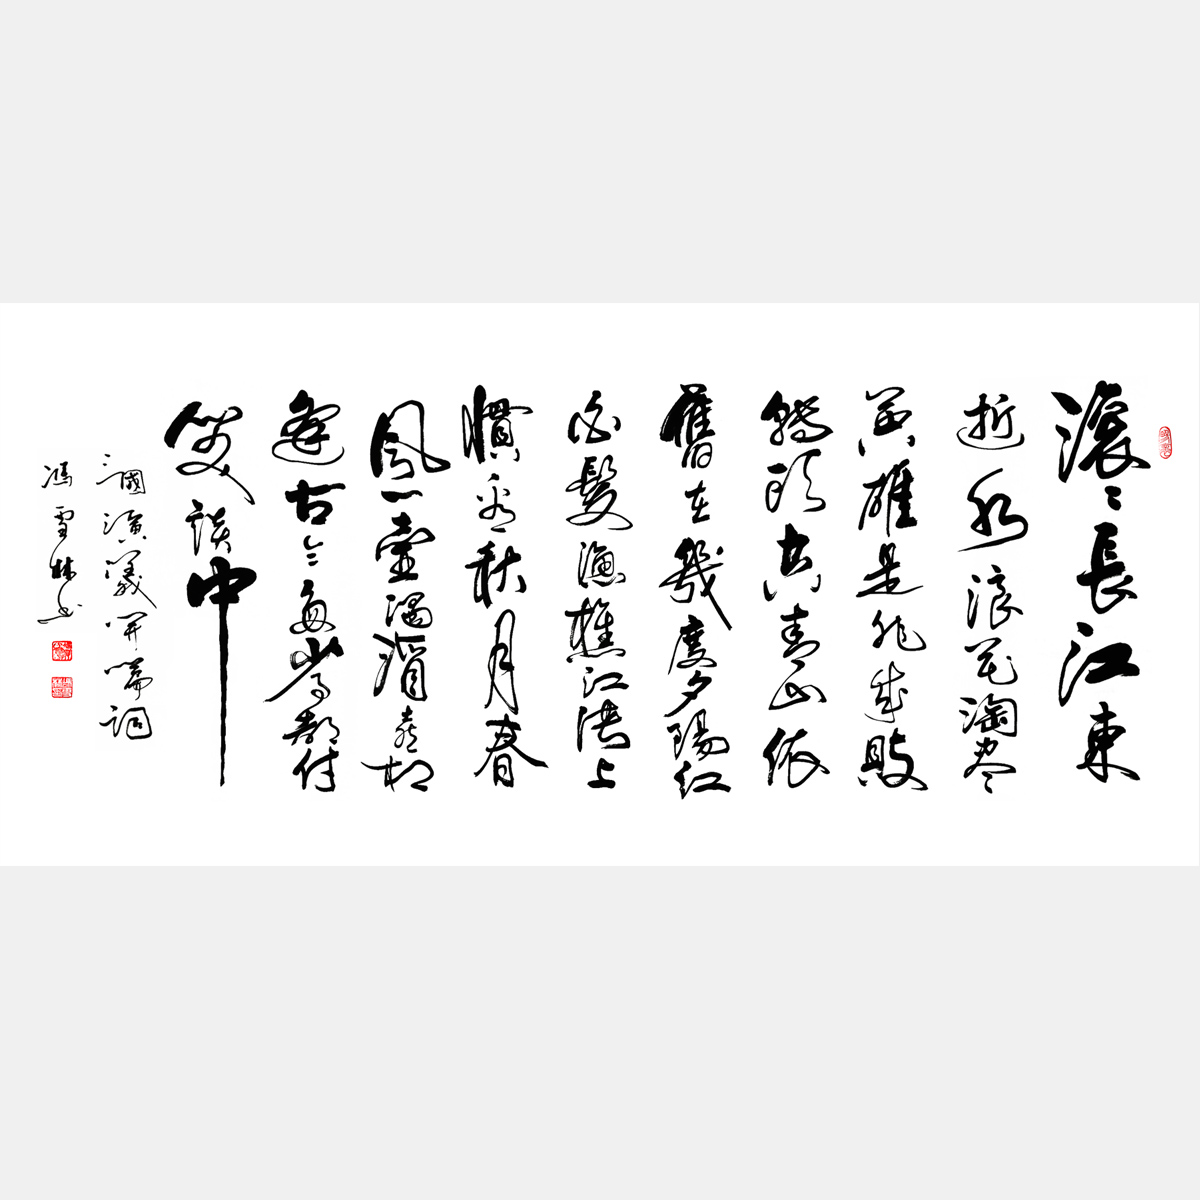 滚々長江東
逝水浪花淘尽
英雄是非成敗
轉頭空青山依
舊在幾度夕陽紅
白髮漁樵江渚上
慣看秋月春
風一壺濁酒喜相
逢古今多少事都付
笑談中
三國演義開篇詞
馮雪林書